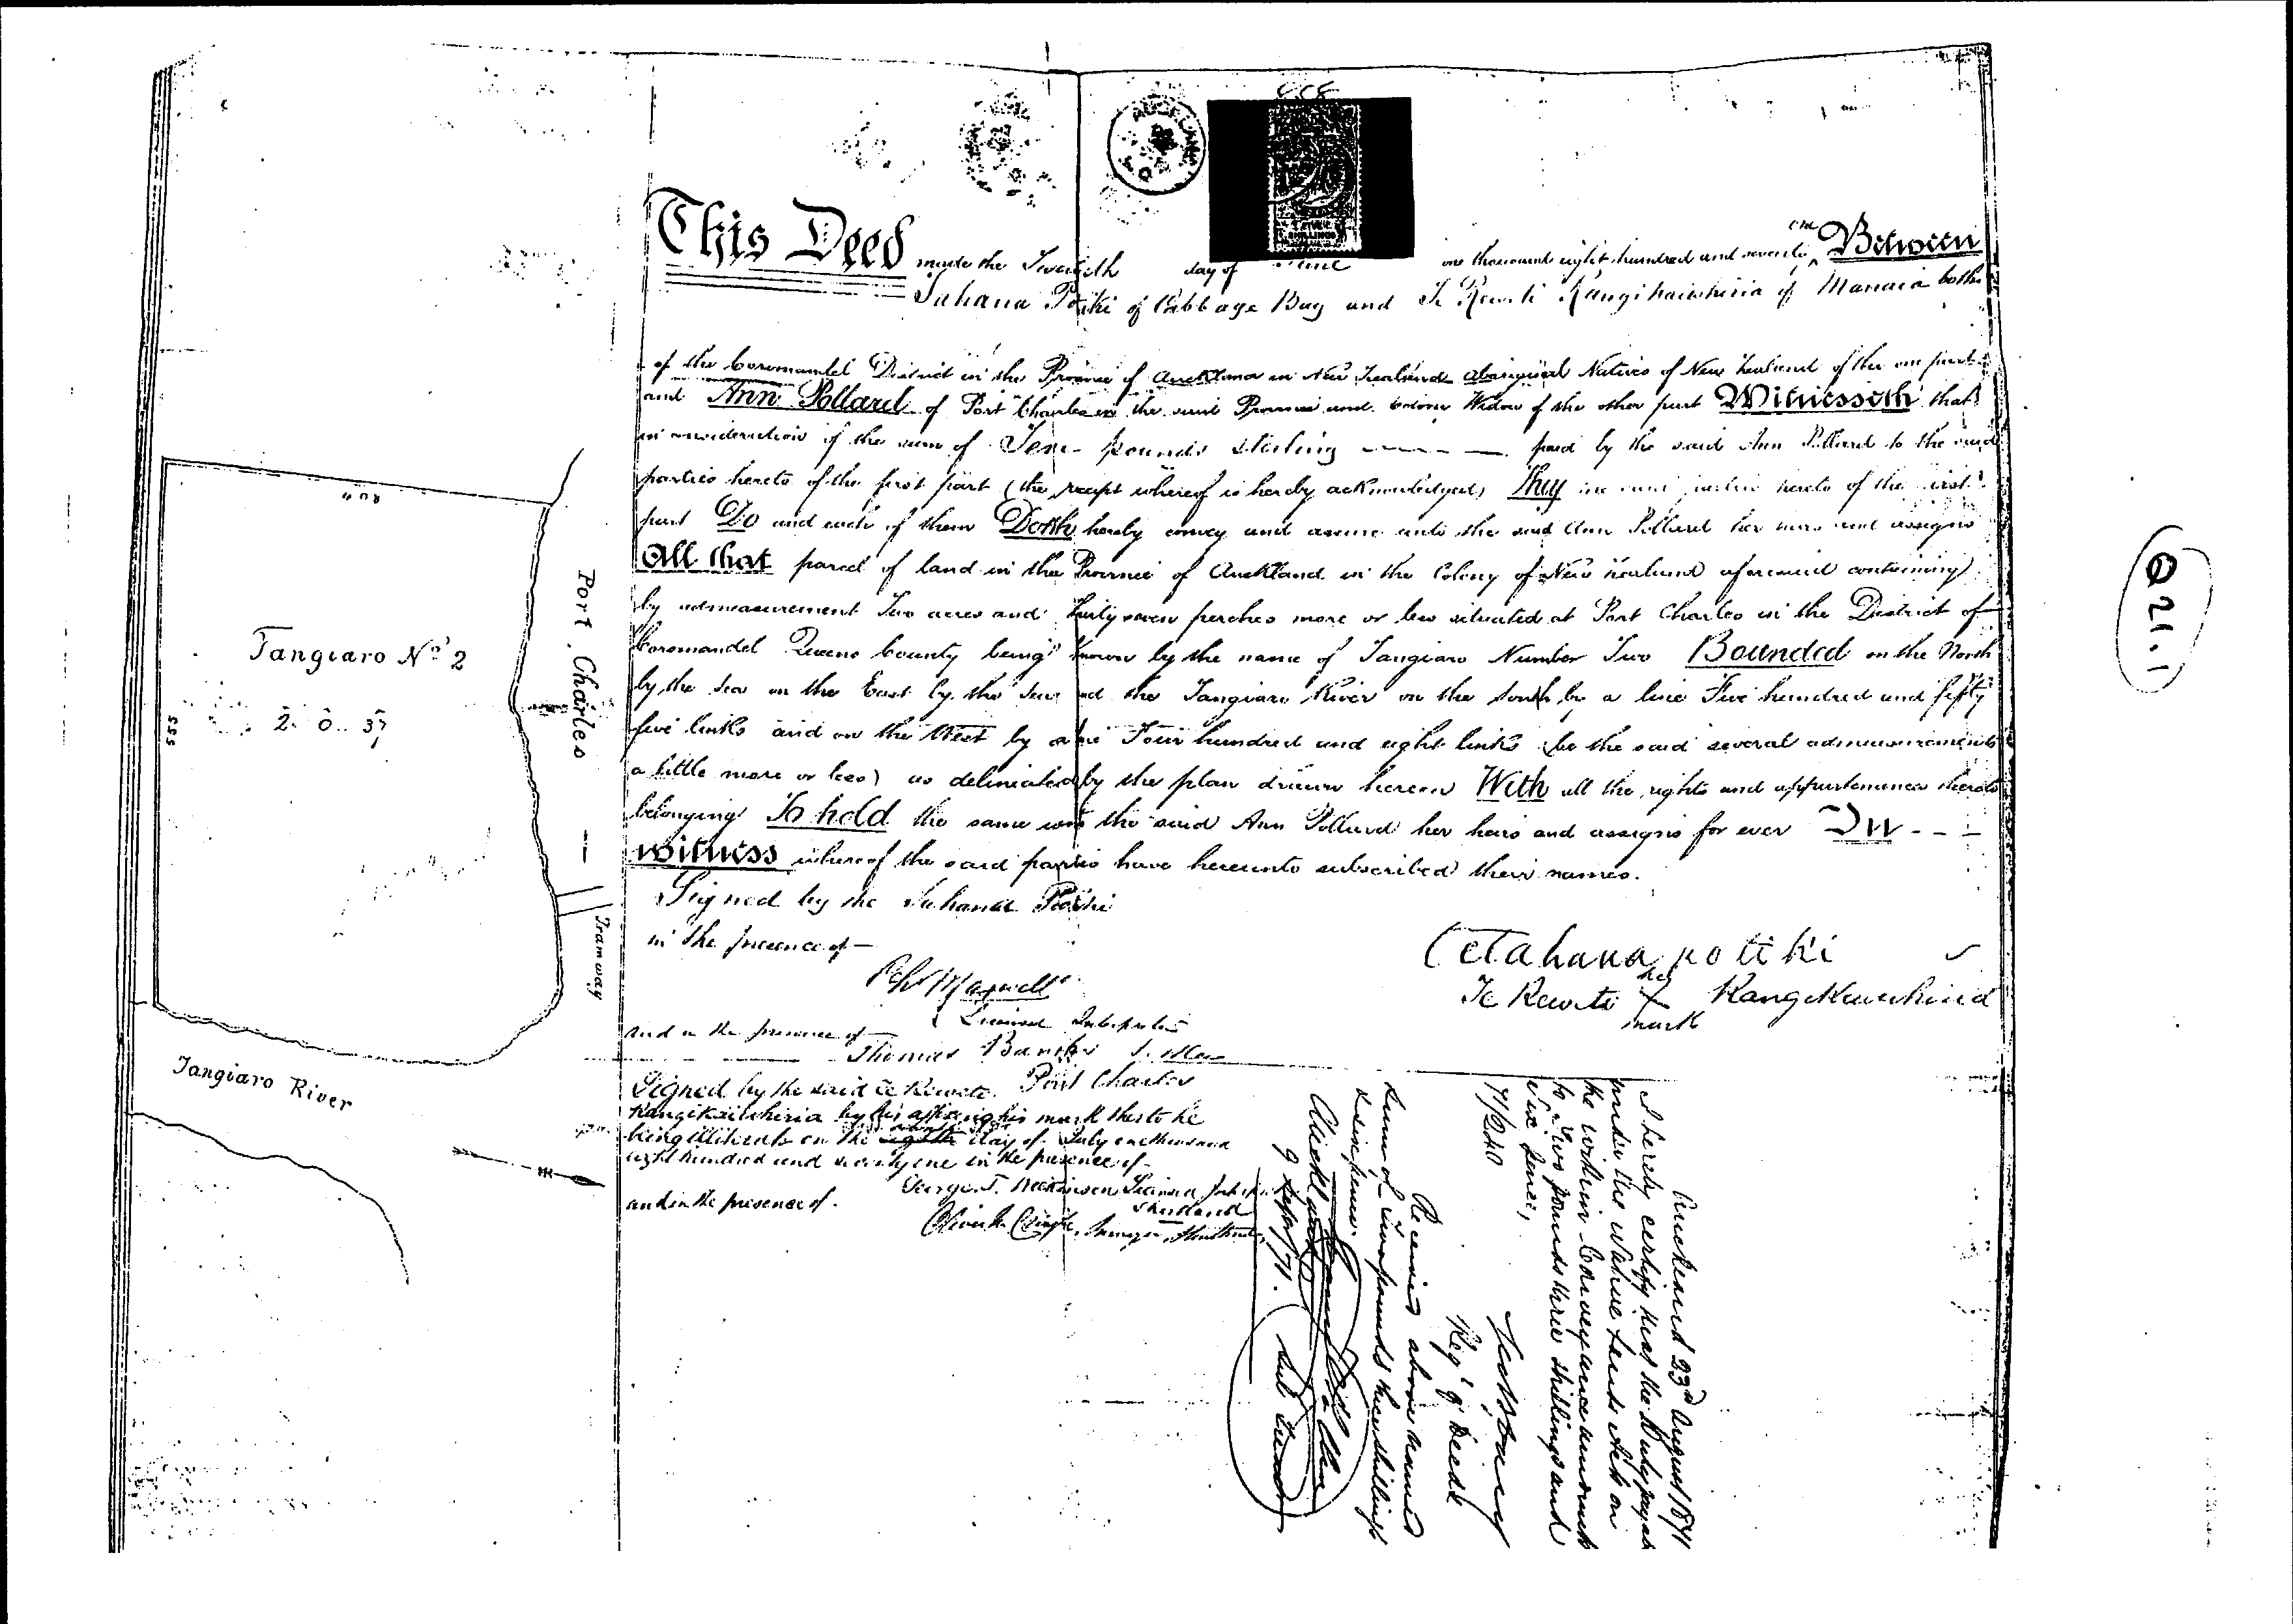 This Deed made the Twentieth day of June one thousand eight hundred and seventy one Between
Tahana Potiki of Cabbage Bay and Te Rewiti Rangikaiwhiria of Manaia both
of the Coromandel District in the Province of Auckland in New Zealand aboriginal Natives of New Zealand of the one part
and Ann Pollard of Port Charles in the said Province and Colony Widow of the other part Witnesseth that
in consideration of the sum of Ten pounds sterling paid by the said Ann Pollard to the said
parties hereto of the first part (the receipt whereof is hereby acknowledged) They the said parties hereto of the first
part Do and each of them Doth hereby convey and assure unto the said Ann Pollard her heirs and assigns
All that parcel of land in the Province of Auckland in the Colony of New Zealand aforesaid containing
by admeasurement Two acres and thirty seven perches more or less situated at Port Charles in the District of
Coromandel Queens County being known by the name of Tangiaro Number Two Bounded on the North
by the Sea on the East by the Sea and the Tangiaro River on the South by a line Five hundred and fifty
five links and on the West by a line Four hundred and eight links (be the said several admeasurements
a little more or less) as delineated by the plan drawn hereon With all the rights and appurtenances thereto
belonging To hold the same unto the said Ann Pollard her heirs and assigns for ever In
witness whereof the said parties have hereunto subscribed their names.
Signed by the Tahana Potiki
in the presence of
Maxwell
Licensed Interpreter
and in the presence of
Thomas Banks Settler
Port Charles
Tetahana potiki
Te Rewiti his X mark Rangikaiwhiria
Signed by the said Te Rewiti
Rangikaiwhiria by his affixing his mark thereto he
being illiterate on the day of July one thousand
eight hundred and seventy one in the presence of
George T. Wilkinson Licensed
Shortland
and in the presence of.
Surveyor, Shortland
Auckland 23rd August 1871
I hereby certify that the Duty payable
under the Native Lands Act on
the within Conveyance amounts
to Two pounds three shillings and
Six pence,
71/240
Reg. of Deeds
Received above named
sum of two pounds three shillings
& sixpence.
Tangiaro No. 2
2. 0.. 37
408
555
Port Charles
Tramway
Tangiaro River
621.1